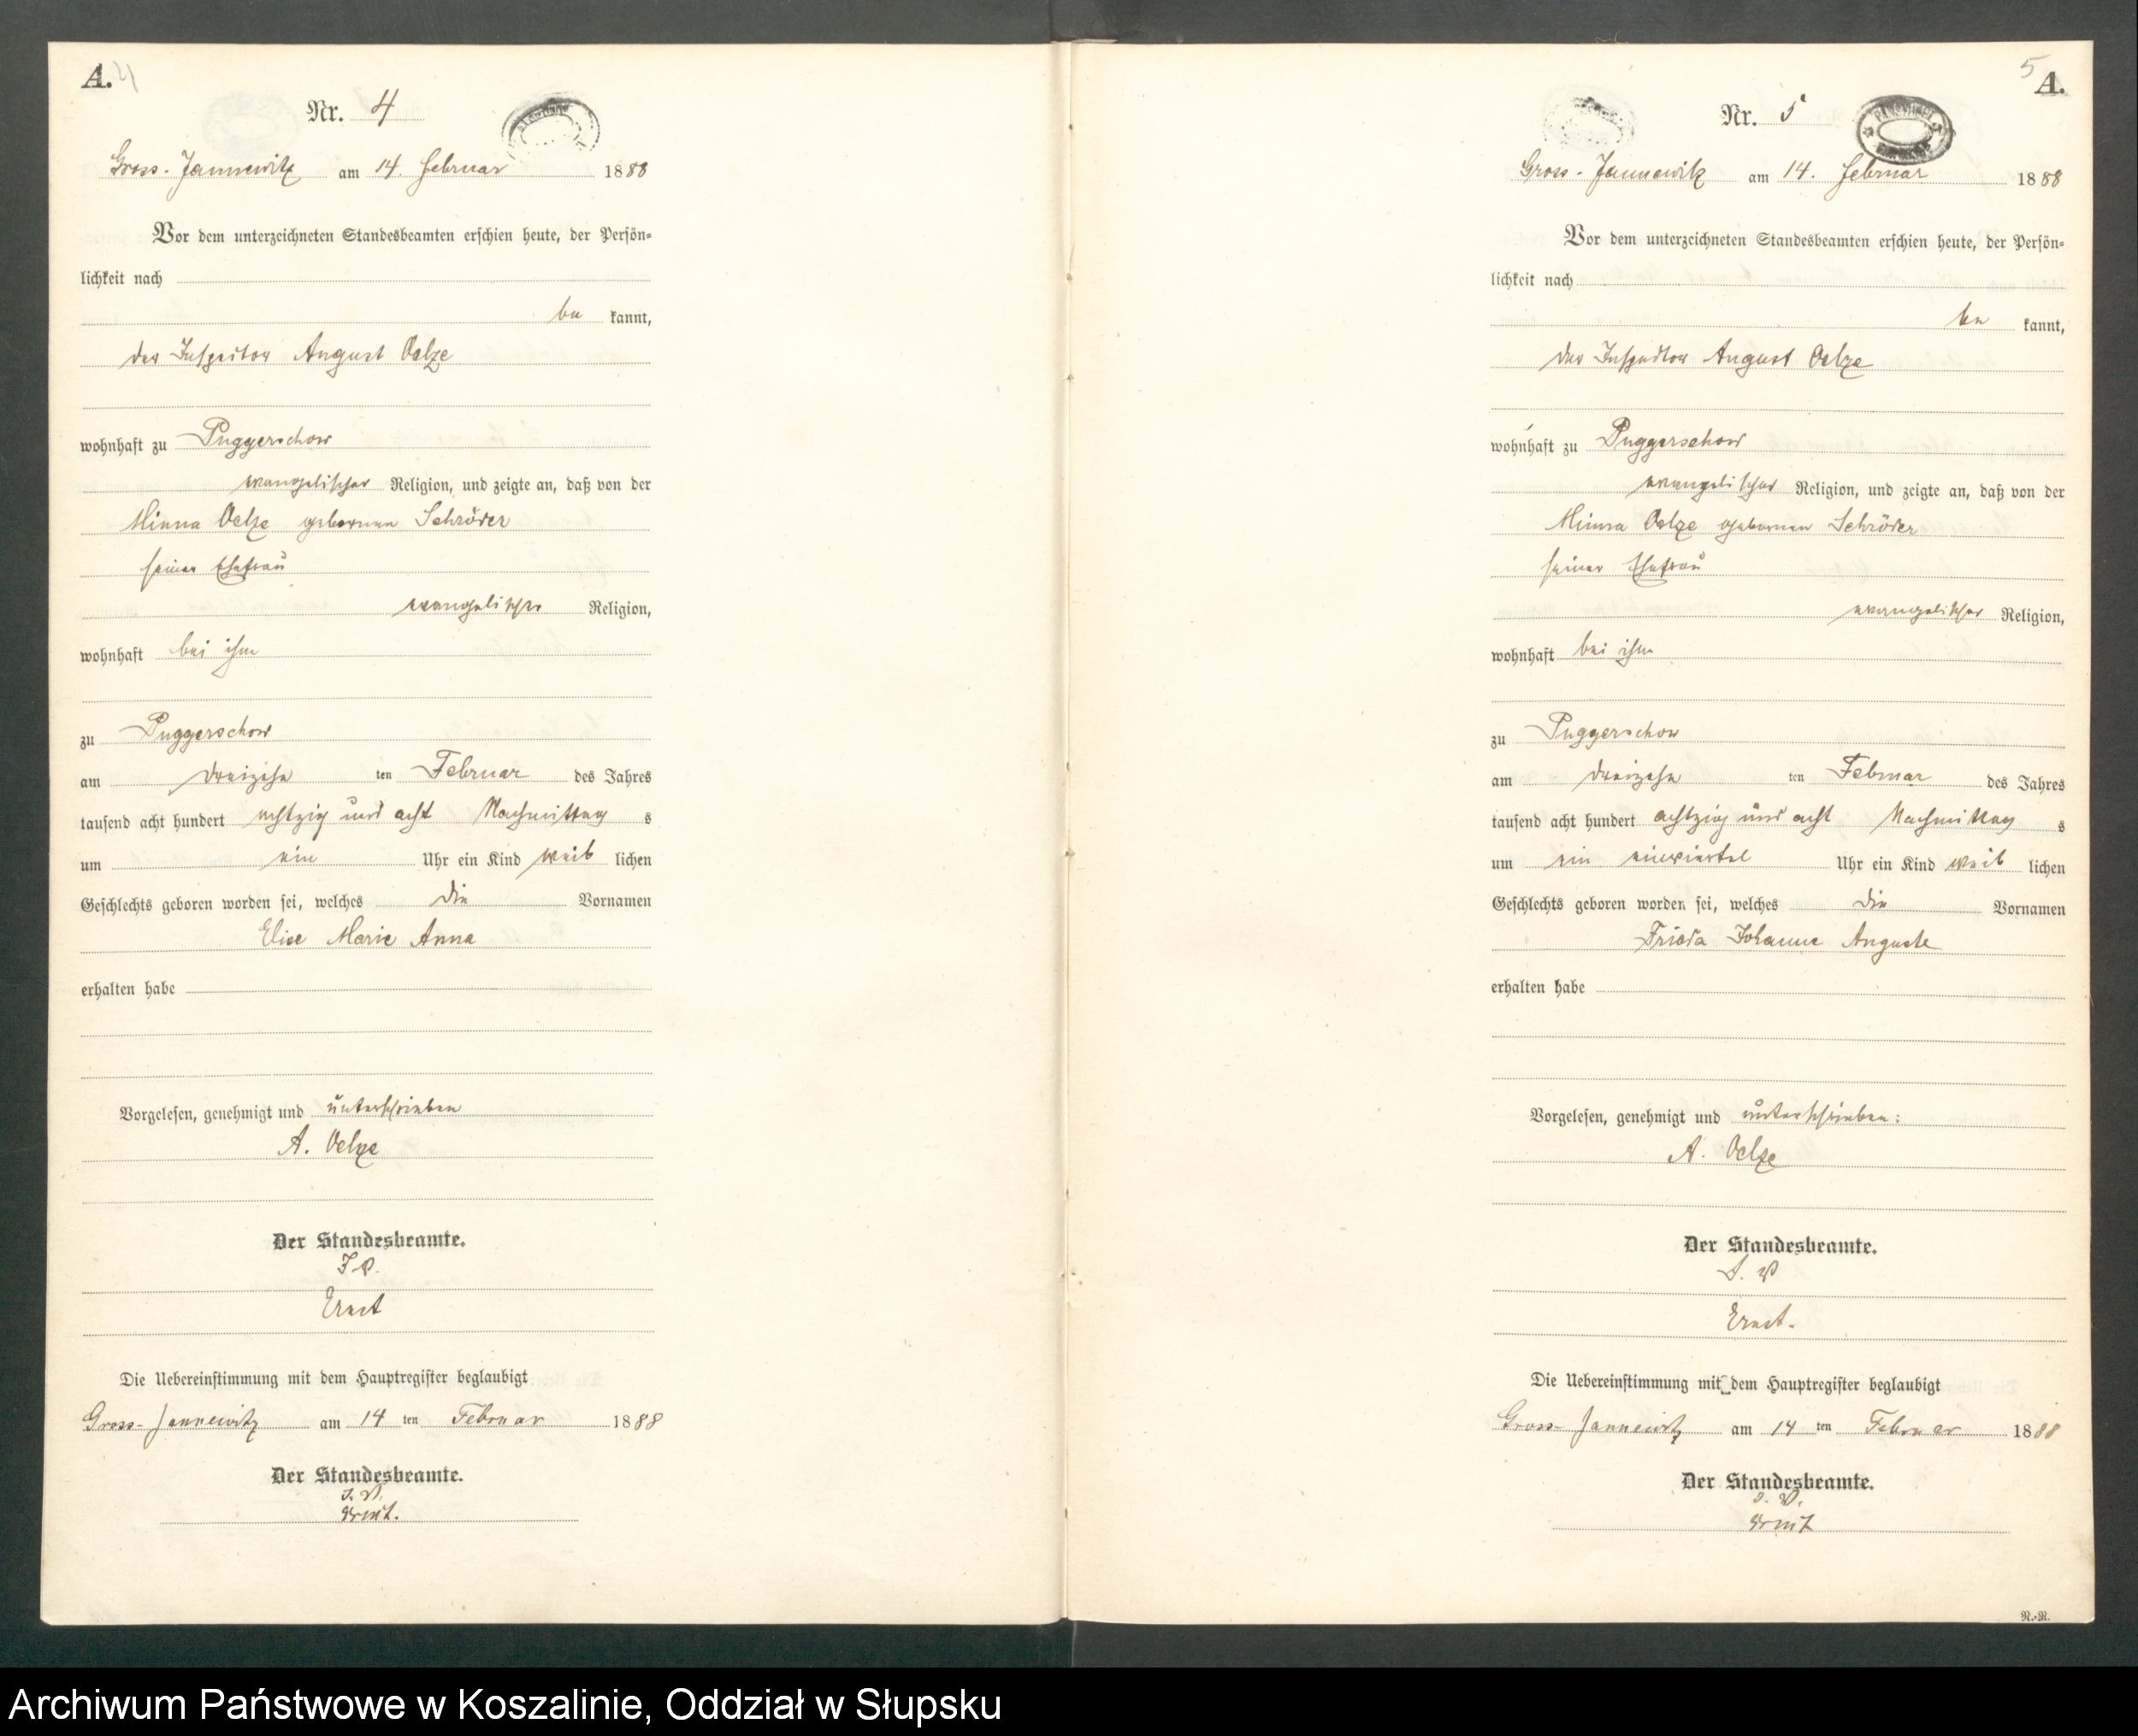 A. 4
Nr. 4
Gross-Jannewitz am 14. Februar 1888
Vor dem unterzeichneten Standesbeamten erschien heute, der Persön=
lichkeit nach
be kannt,
der Inspector August Oelze
wohnhaft zu Puggerschow
evangelischer Religion, und zeigte an, daß von der
Minna Oelze geborenen Schröder
seiner Ehefrau
evangelischer Religion,
wohnhaft bei ihm
zu Puggerschow
am dreizehn ten Februar des Jahres
tausend acht hundert achtzig und acht Nachmittag s
um ein Uhr ein Kind weib lichen
Geschlechts geboren worden sei, welches die Vornamen
Elise Marie Anna
erhalten habe
Vorgelesen, genehmigt und unterschrieben
A. Oelze
Der Standesbeamte.
I.V.
Ernst
Die Uebereinstimmung mit dem Hauptregister beglaubigt
Gross-Jannewitz am 14 ten Februar 1888
Der Standesbeamte.
I.V.
Ernst.
5 A.
Nr. 5
Gross-Jannewitz am 14. Februar 1888
Vor dem unterzeichneten Standesbeamten erschien heute, der Persön=
lichkeit nach
be kannt,
der Inspector August Oelze
wohnhaft zu Puggerschow
evangelischer Religion, und zeigte an, daß von der
Minna Oelze geborenen Schröder
seiner Ehefrau
evangelischer Religion,
wohnhaft bei ihm
zu Puggerschow
am dreizehn ten Februar des Jahres
tausend acht hundert achtzig und acht Nachmittag s
um ein einviertel Uhr ein Kind weib lichen
Geschlechts geboren worden sei, welches die Vornamen
Frieda Johanne Auguste
erhalten habe
Vorgelesen, genehmigt und unterschrieben:
A. Oelze
Der Standesbeamte.
I.V
Ernst.
Die Uebereinstimmung mit dem Hauptregister beglaubigt
Gross-Jannewitz am 14 ten Februar 1888
Der Standesbeamte.
I.V.
Ernst
R.-R.
Archiwum Państwowe w Koszalinie, Oddział w Słupsku